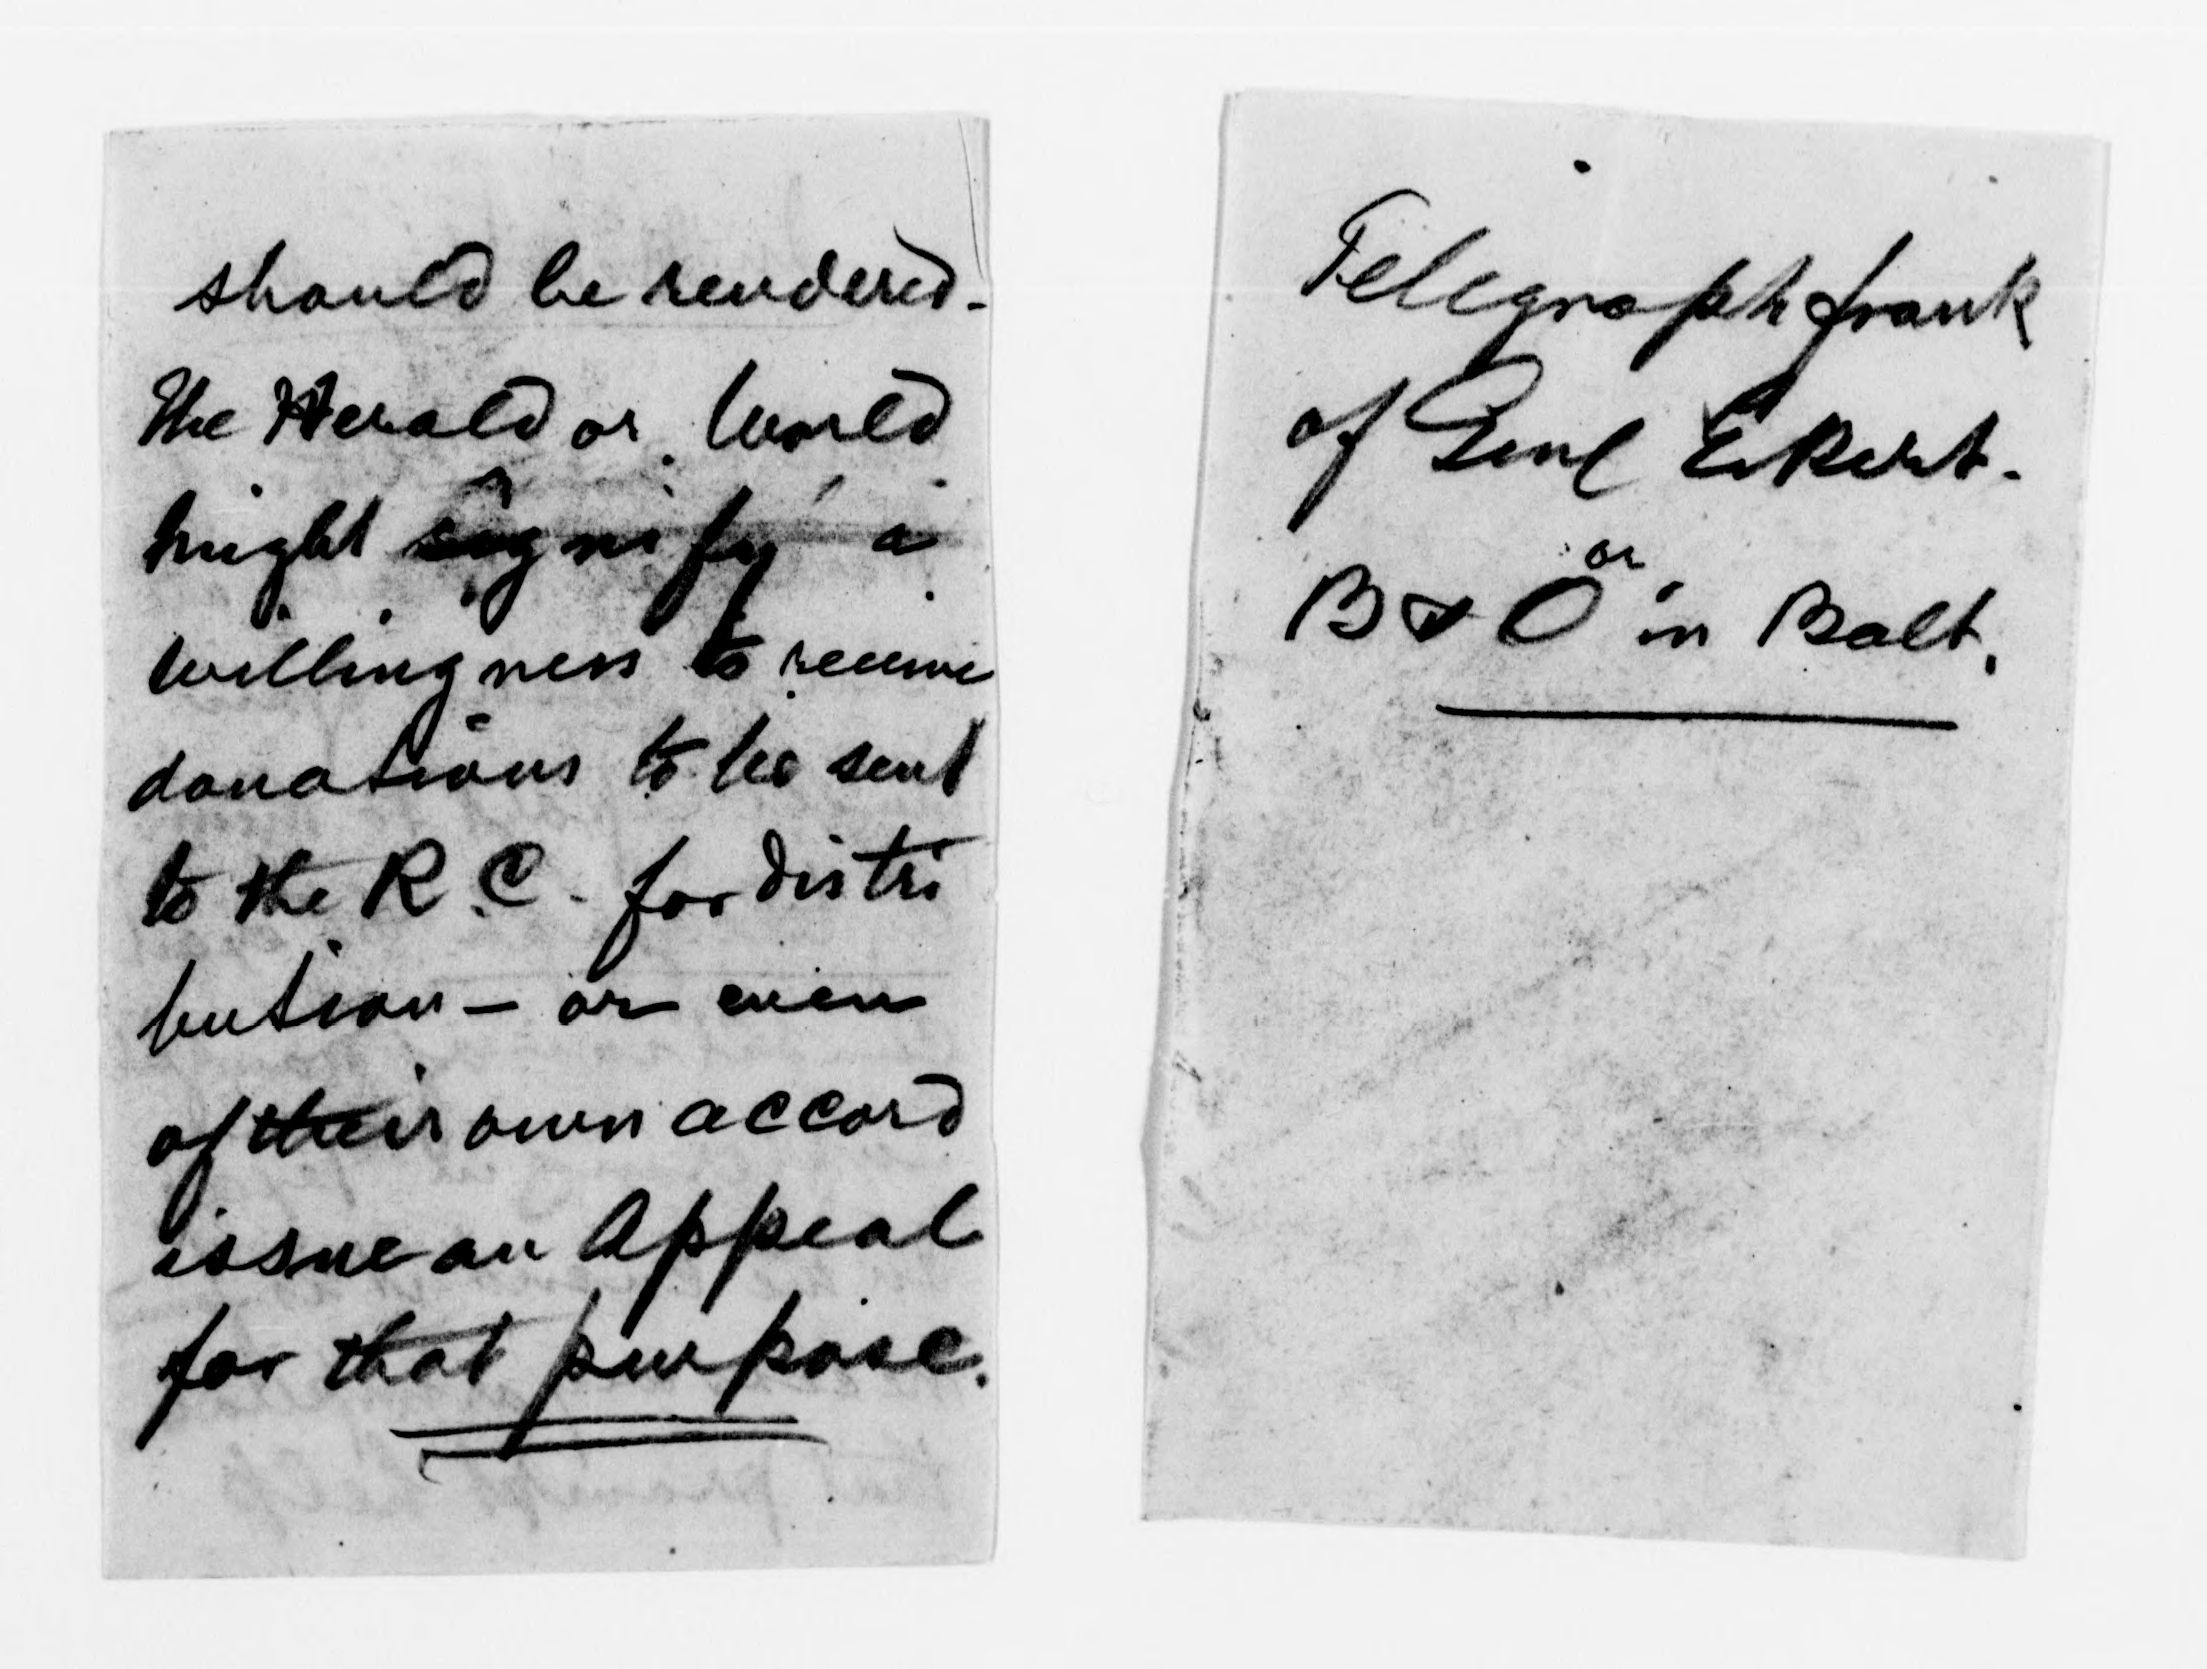 should be rendered-
The Herald or World
might signify a
willingness to receive
donations to be sent
to the R.C. for distri
bution - or even
of their own accord
issue an Appeal
for that purpose.
Telegraph frank
of Genl Eckert.
or
B & O in Balt.